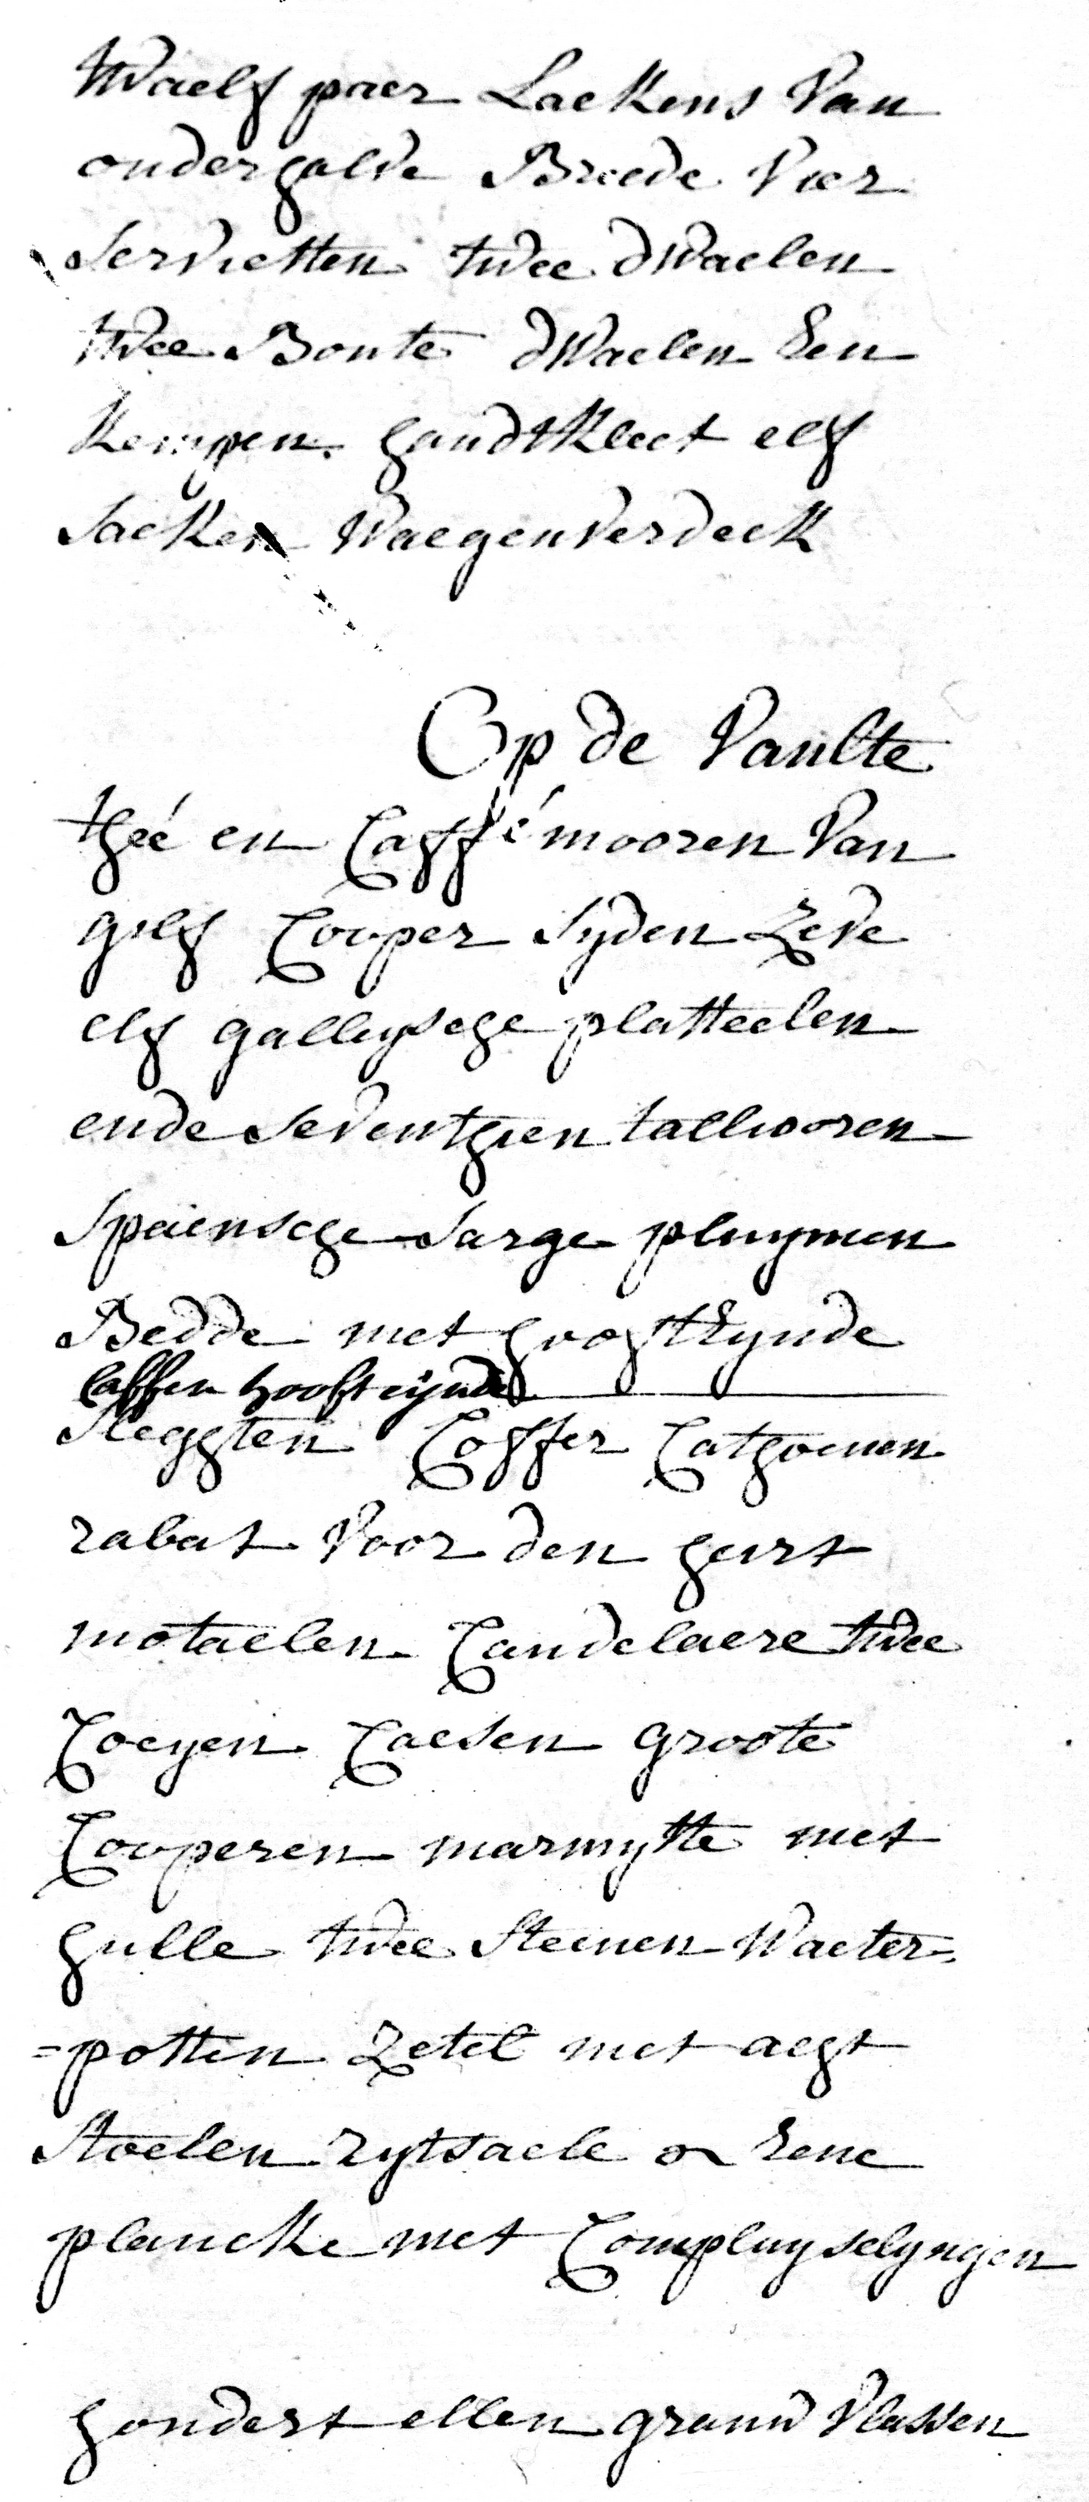 twaelf paer Laekens Van
onderhalve Breede Vier
Servietten twee dWaelen
twee Bonte dWaelen Een
Kempen handtKleet elf
Saeken WaegenVerdeck
Op de Vaulte
theé en Caffé mooren Van
gelf Cooper Syden Zeve
elf galleysche platteelen
ende Seventhien talliooren
Spaensche Sarge pluymen
Bedde met hooftEynde
Caffen hooft eijnde
Sleghten Coffer Cathoenen
rabat Voor den heirt
motaelen Candelaere twee
Coeyen Caesen groote
Cooperen marmytte met
hulle twee Steenen Waeter=
=potten Zetel met aeht
Stoelen rytsaele Eene
plancke met Compluyselyngen
hondert ellen grauw Vlassen